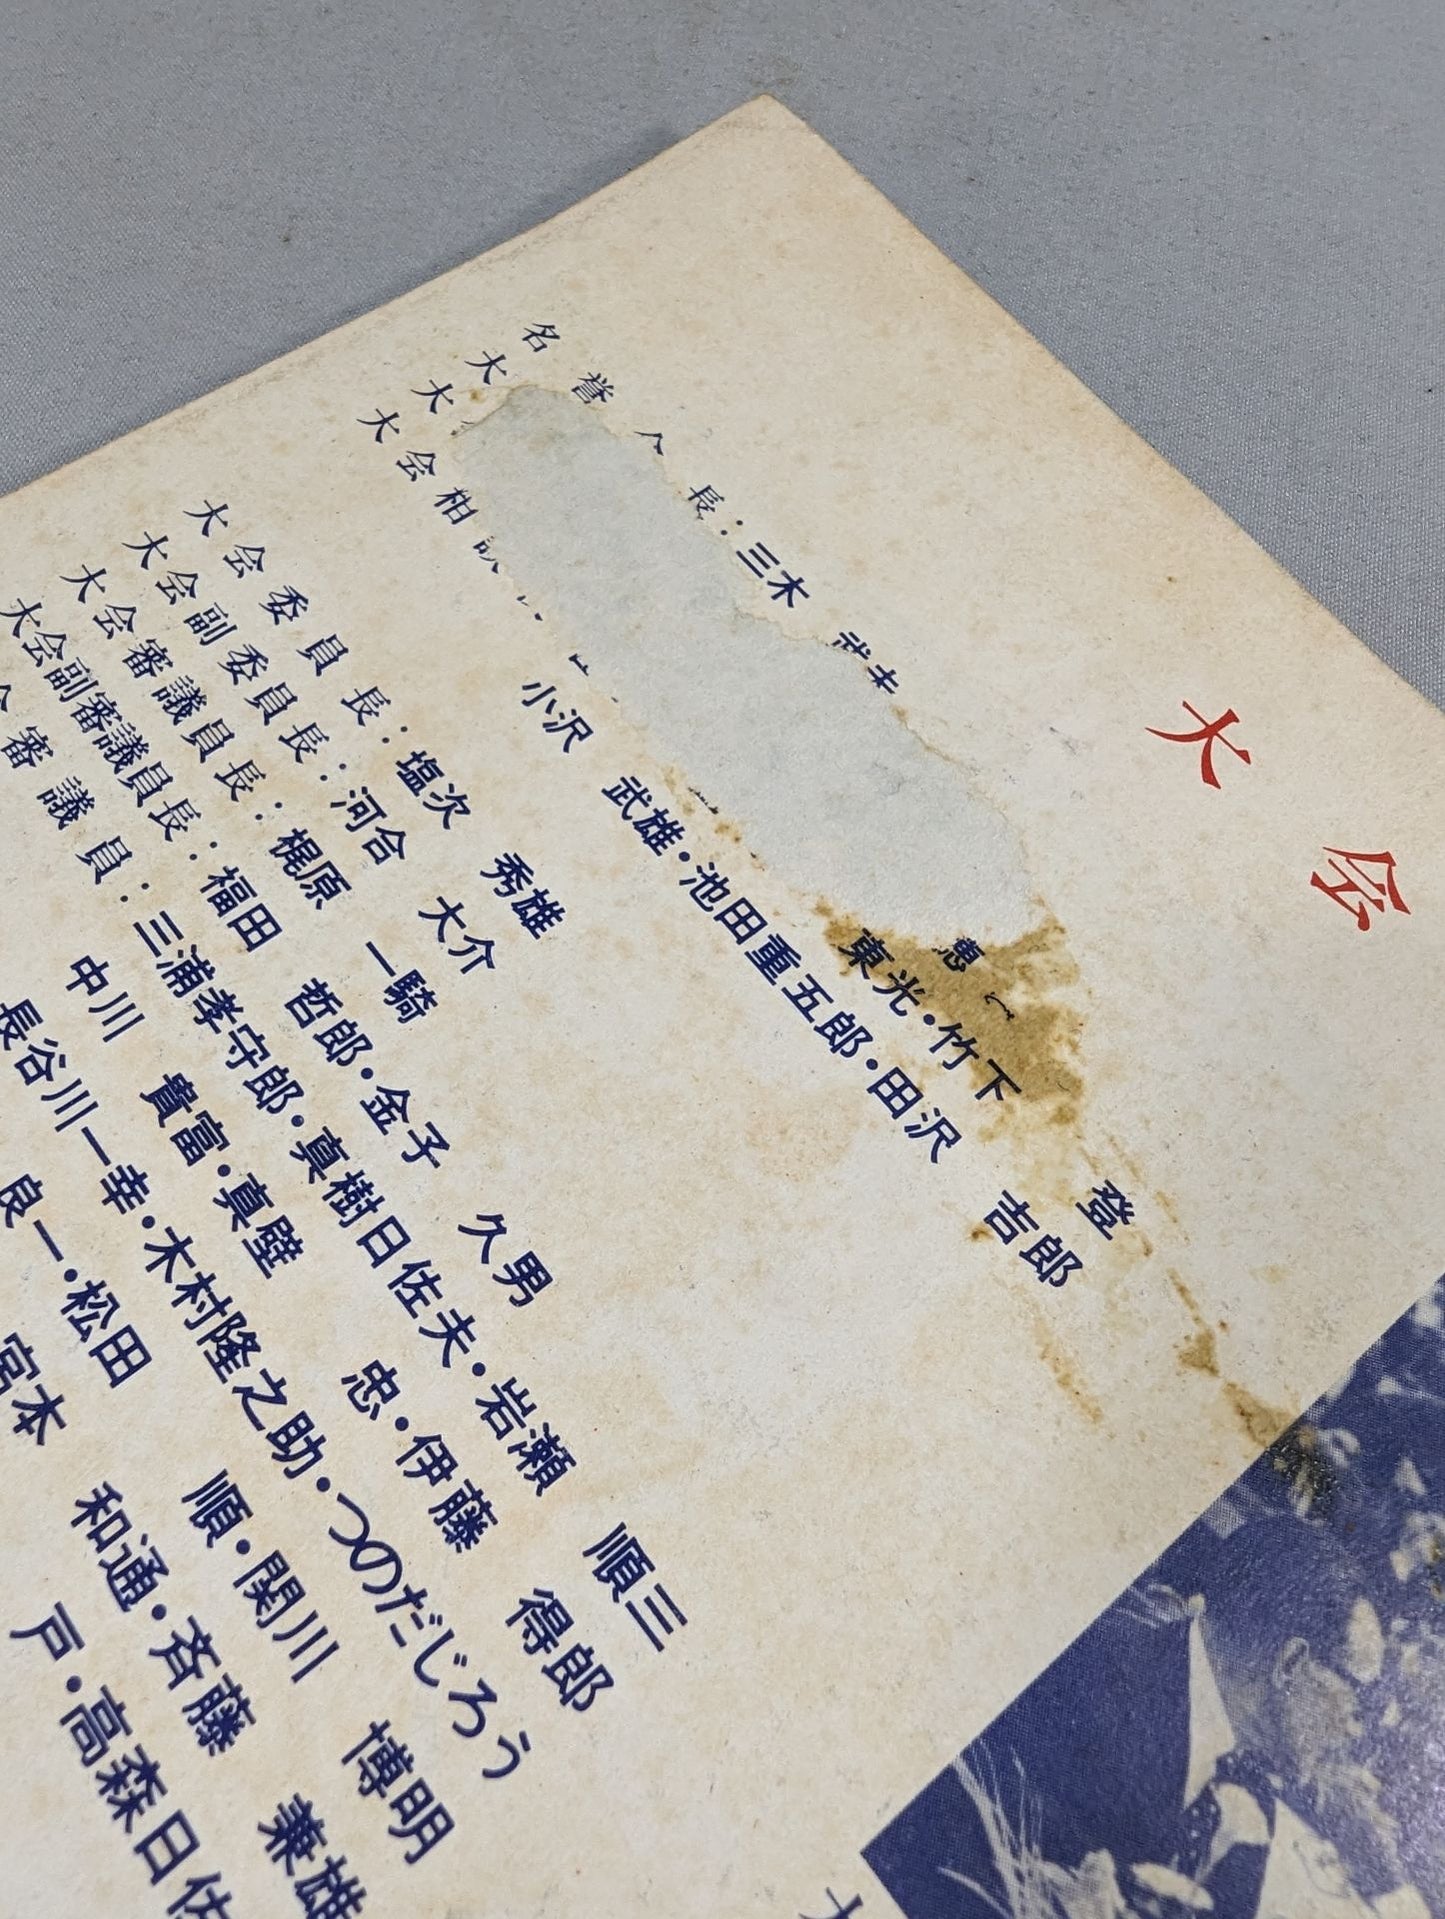 大会
名誉会長：三木 武夫
大
大
大会相談
東光・竹下 登
小沢 武雄・池田重五郎・田沢 吉郎
大会委員長：塩次 秀雄
大会副委員長：河合 大介
大会審議員長：梶原 一騎
大会副審議員長：福田 哲郎・金子 久男
審議員：三浦孝守郎・真樹日佐夫・岩瀬 順三
中川 貴富・真壁 忠・伊藤 得郎
長谷川一幸・木村隆之助・つのだじろう
良一・松田 順・関川 博明
宮本 和通・斉藤 兼雄
戸・高森日佐